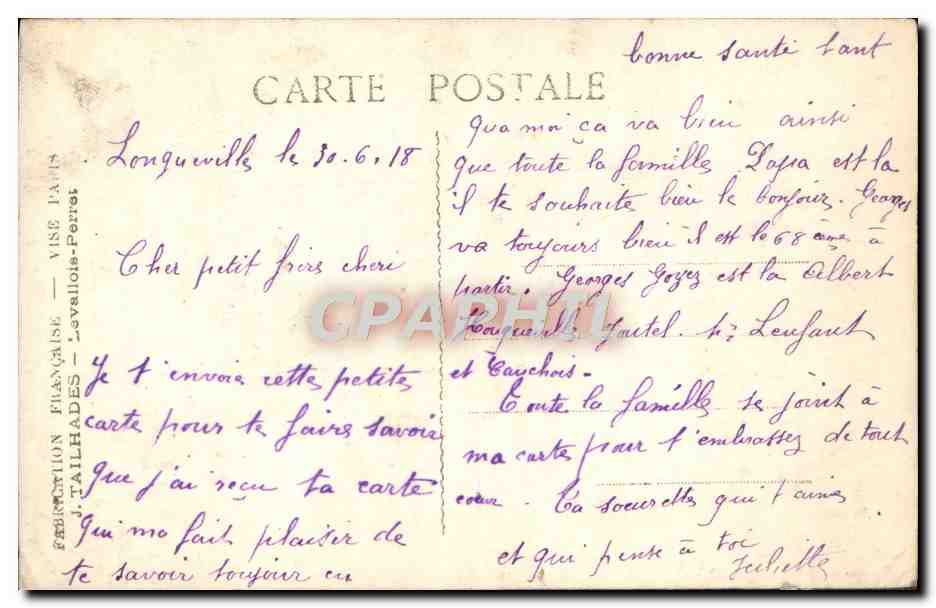 CARTE POSTALE
Longueville le 30.6.18
Cher petit frère cheri
Je t'envoie cette petite
carte pour te faire savoir
que j'ai reçu ta carte
qui ma fait plaisir de
te savoir toujour en
bonne santé tant
qua moi ça va bien ainsi
que toute la famille Papa est la
il te souhaite bien le bonjour. Georges
va toujours bien il est le 68 èmes à
partir. Georges Gozez est la Albert
et Cauchois.
Toute la famille se joint à
ma carte pour t'embrasser de tout
cœur. Ta soeurette qui t'aime
et qui pense à toi
Juliette
FABRICATION FRANÇAISE — VISÉ PARIS
J. TAILHADES — Levallois-Perret
CPAPHIL